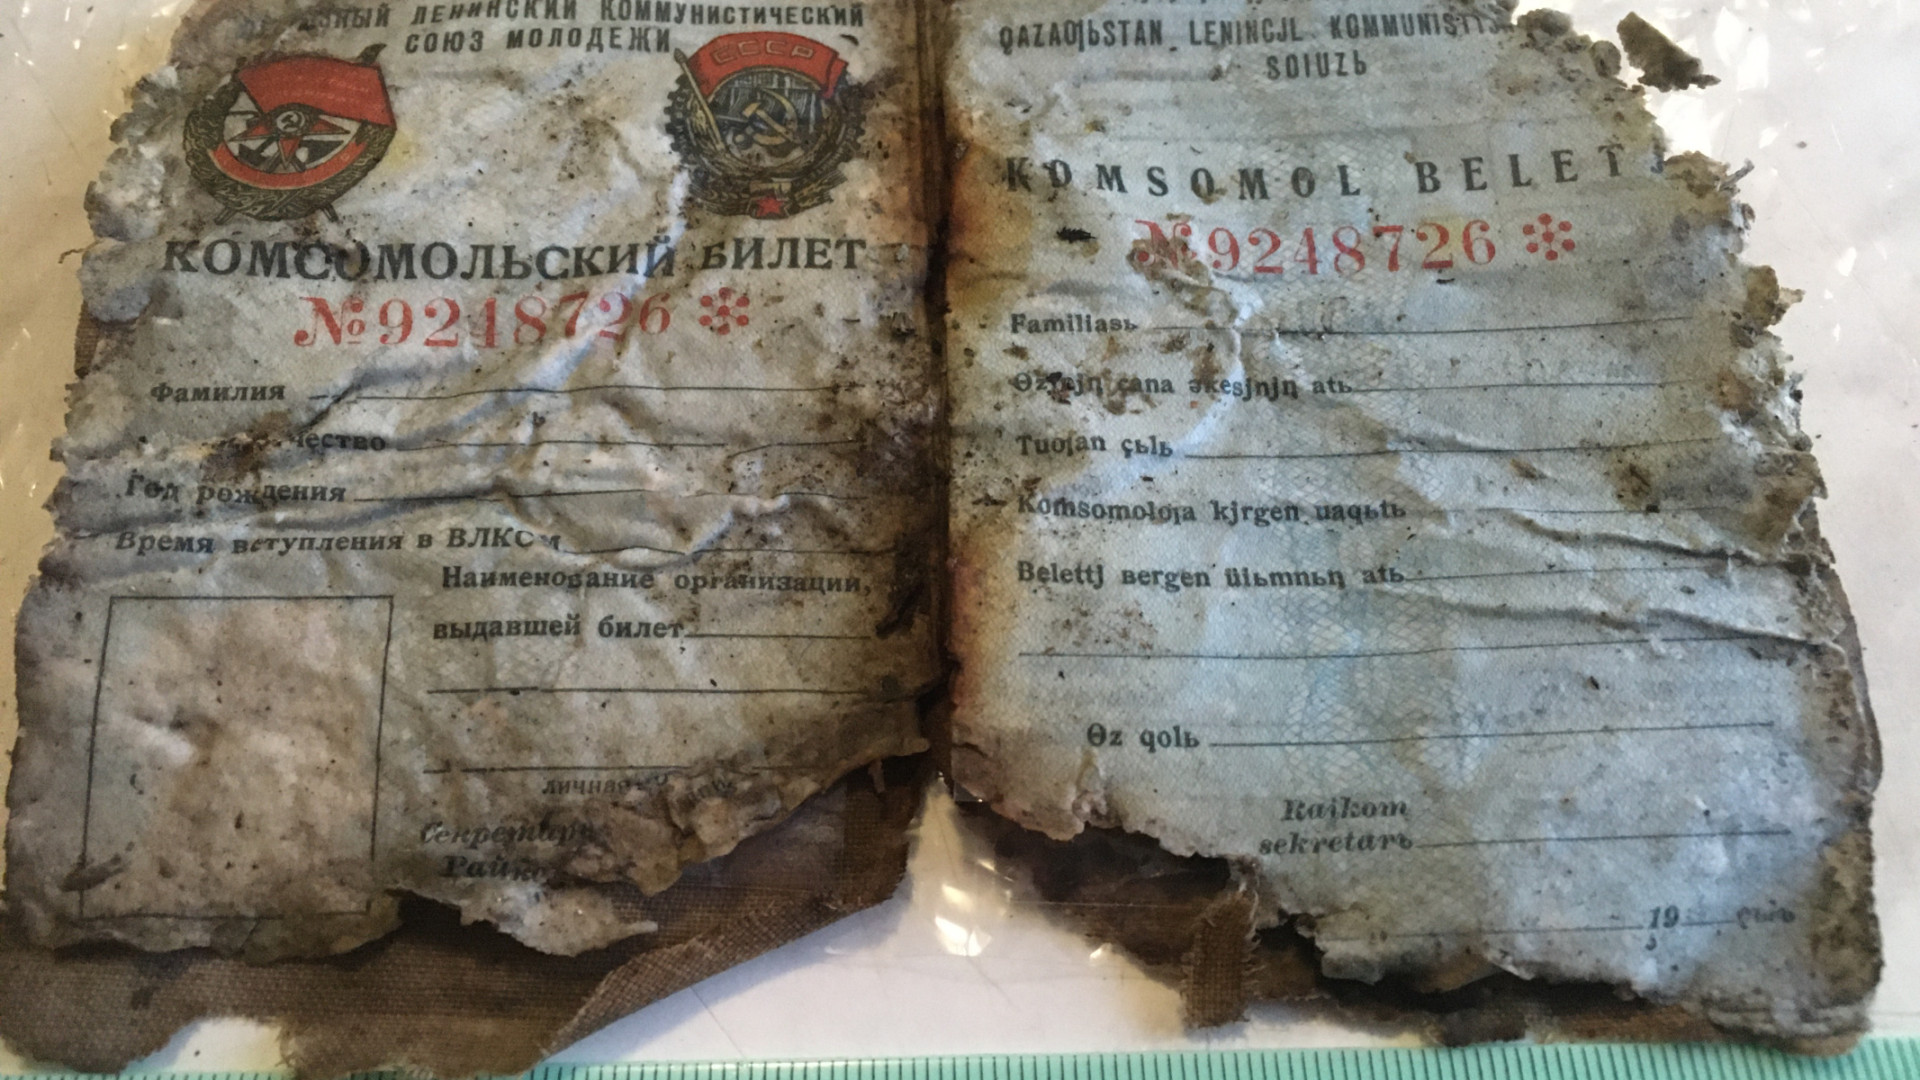 ЛЕНИНСКИЙ КОММУНИСТИЧЕСКИЙ
СОЮЗ МОЛОДЕЖИ
СССР
КОМСОМОЛЬСКИЙ БИЛЕТ
№9248726
Фамилия
Год рождения
Время вступления в ВЛКСМ
Наименование организации,
выдавшей билет
личная
Секретарь
QAZAQЬSTAN LENINCJL
SOIUZЬ
KOMSOMOL BELETJ
№9248726
Familiasь
çana əkesjnjꞑ atь
Tuoƣan çьlь
Komsomolƣa kjrgen uaqьtь
Belettj вergen ūiьmnьꞑ atь
Өz qolь
Raikom
sekretarь
19 çьlь